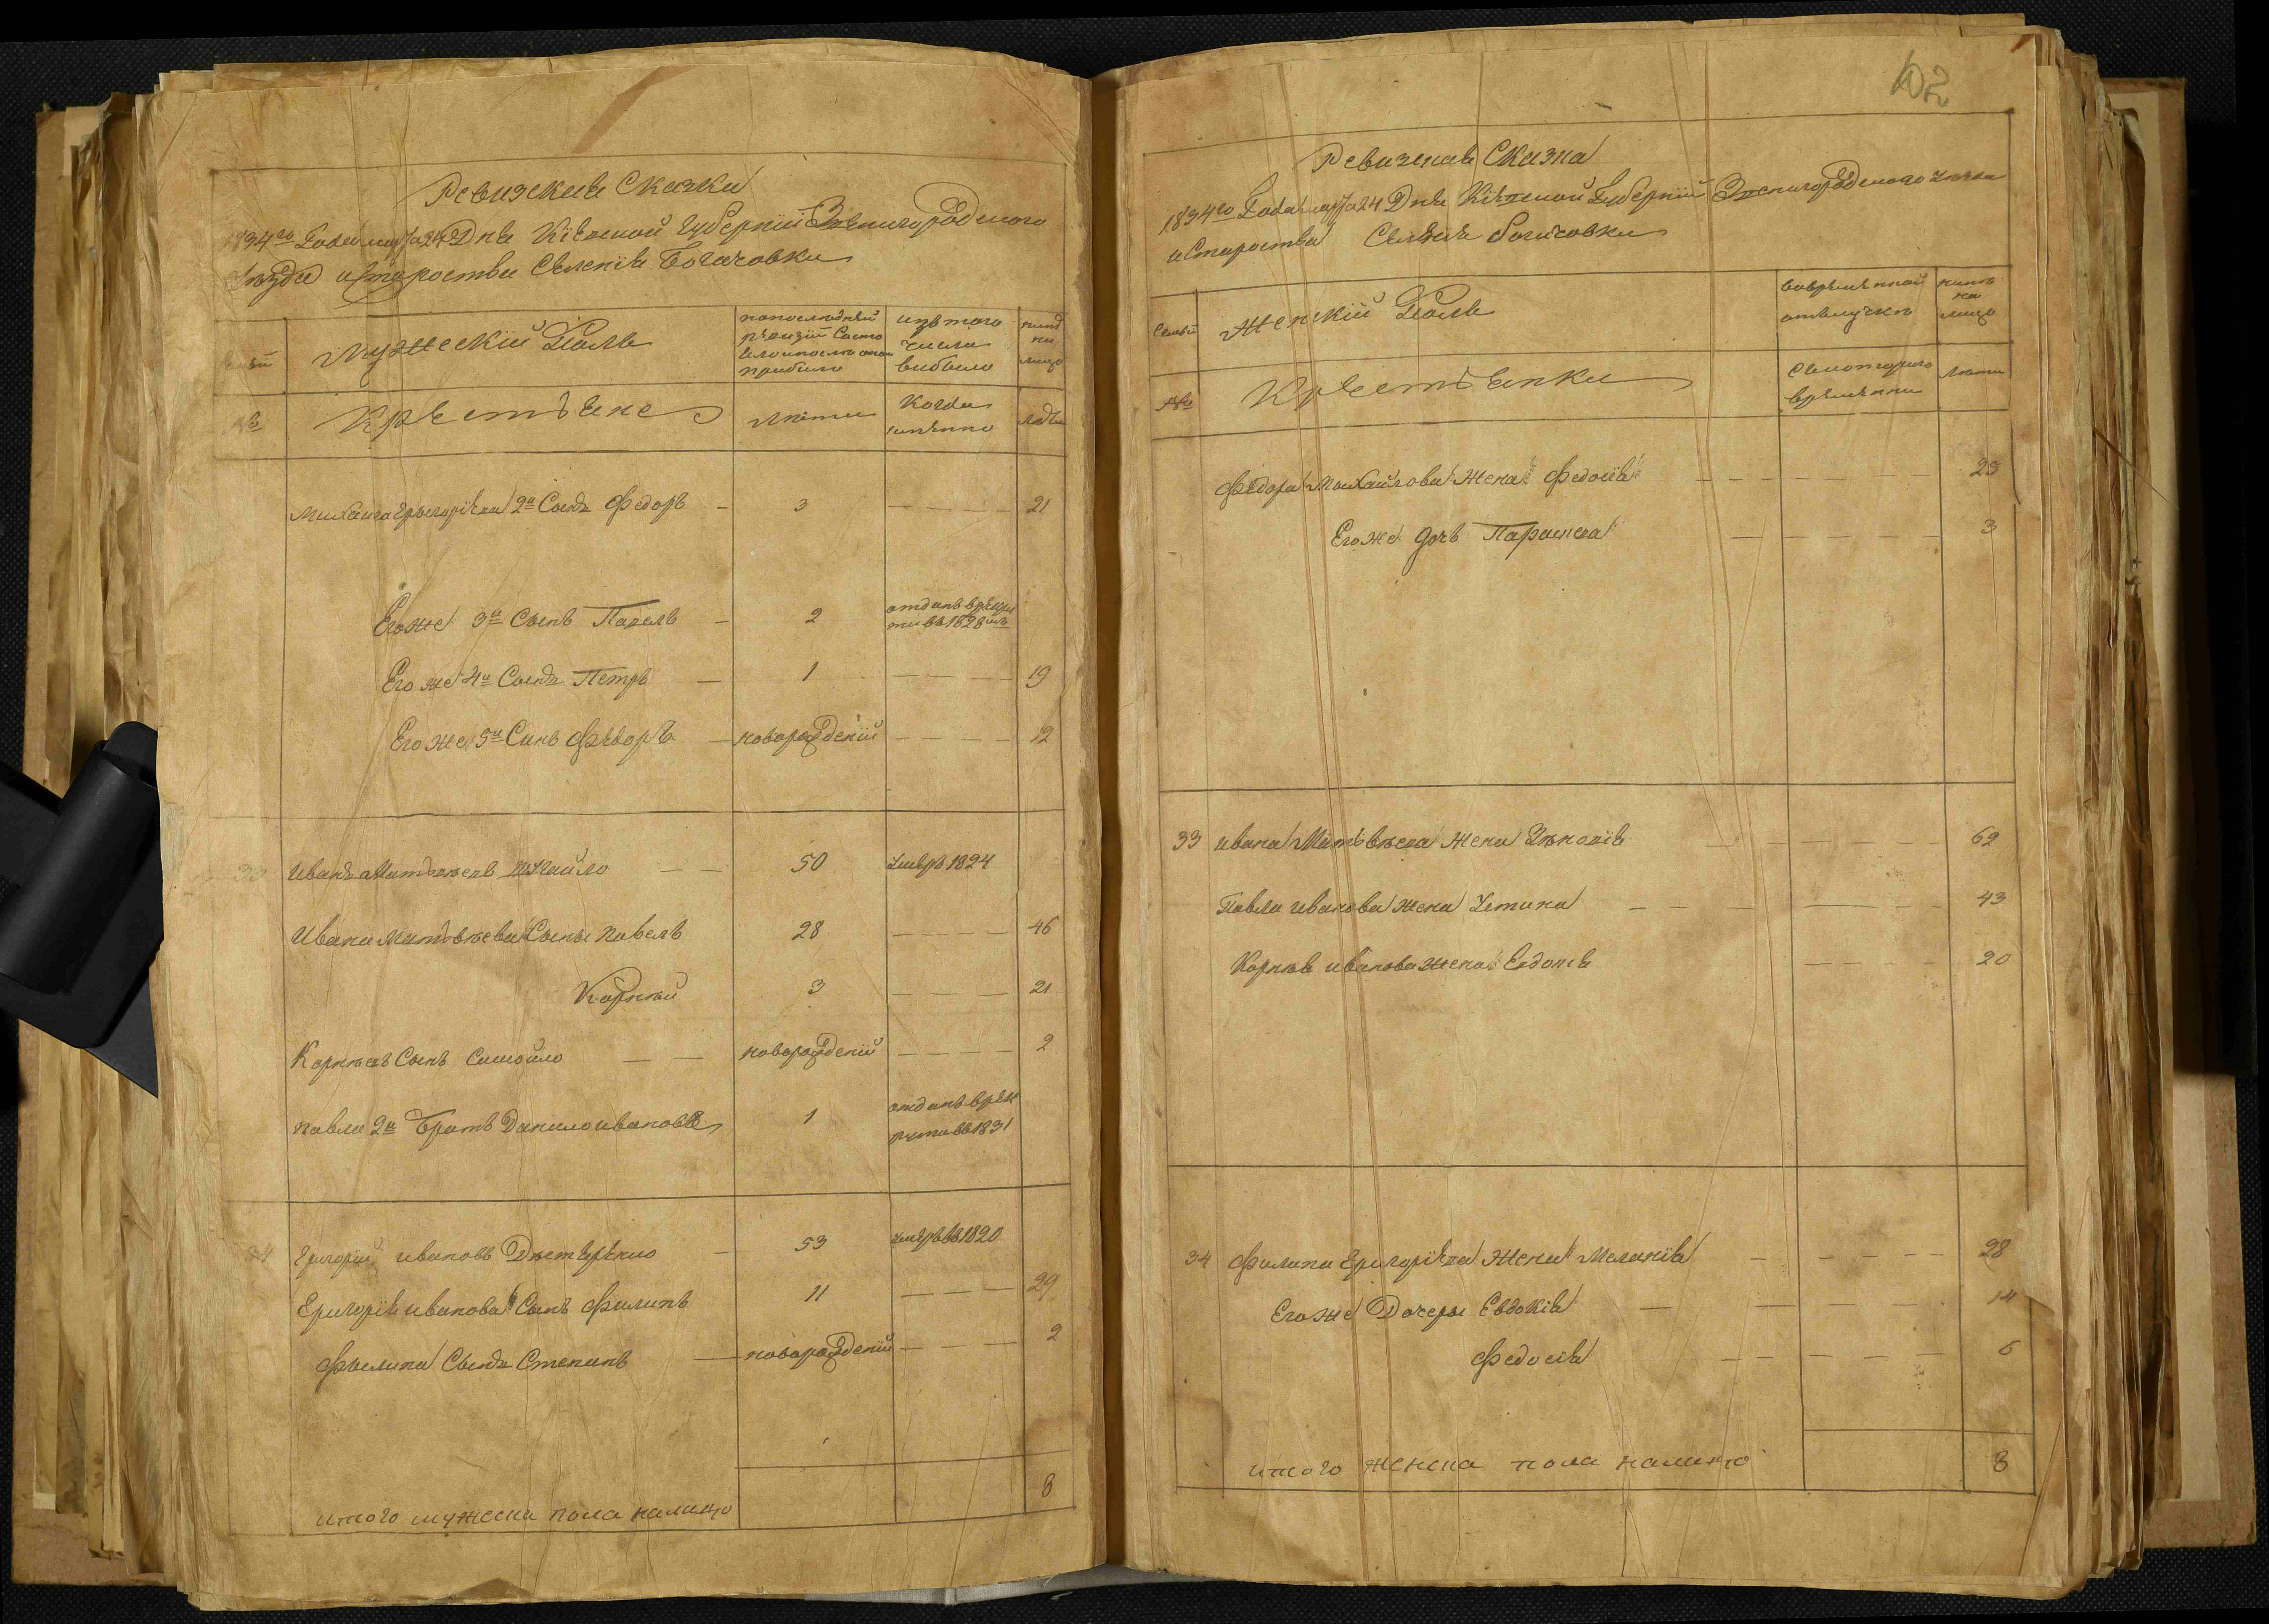 Ревизская Сказка
1834го Года мая 24 Дня Кіевской Губерніи Звенигородского
Уезда и староства Селенія Богачовки
Мужескій Полъ
по последней
ревизіи Состо
яло и после оной
прибыло
изъ того
числа
выбыло
ныне
на
лицо
№
Крестьяне
Лети
Когда
именно
Лета
Михаила Григоріева 2й Сынъ Федоръ 3 21
Его же 3й Сынъ Павелъ 2 отданъ в рекру
ти въ 1828мъ
Его же 4й Сынъ Петръ 1 19
Его же 5й Синъ Федоръ новорожденій 12
33 Иванъ Матвеевъ 50 умеръ 1824
Ивана Матвеева Сыны Павелъ 28 46
Корней 3 21
Корнеевъ Сынъ Самойло новорожденій 2
Павла 2й Братъ Данило Ивановъ 1 отданъ в рек
рути въ 1831
34 Григорій Ивановъ 53 умеръ въ 1820
Григорія Иванова Сынъ Филипъ 11 29
Филипа Сынъ Степанъ новорожденій 2
итого мужеска пола налицо 8
102
Ревизская Сказка
1834го Года мая 24 Дня Кіевской Губерніи Звенигородского уезда
и Староства Селенія Богачовки
Семьи
Женскій Полъ
во временной
отлучке
ныне
на
лицо
№
Крестьянки
Съ которого
времени
Лети
Федора Михайлова Жена Федосія 23
Его же дочь Параскева 3
33 Ивана Матвеева Жена 62
Павла Иванова Жена Устина 43
Корнея Иванова Жена Евдокія 20
34 Филипа Григоріева Жена Меланія 28
Его же Дочери Евдокія 14
Федосія 6
итого женска пола налицо 8